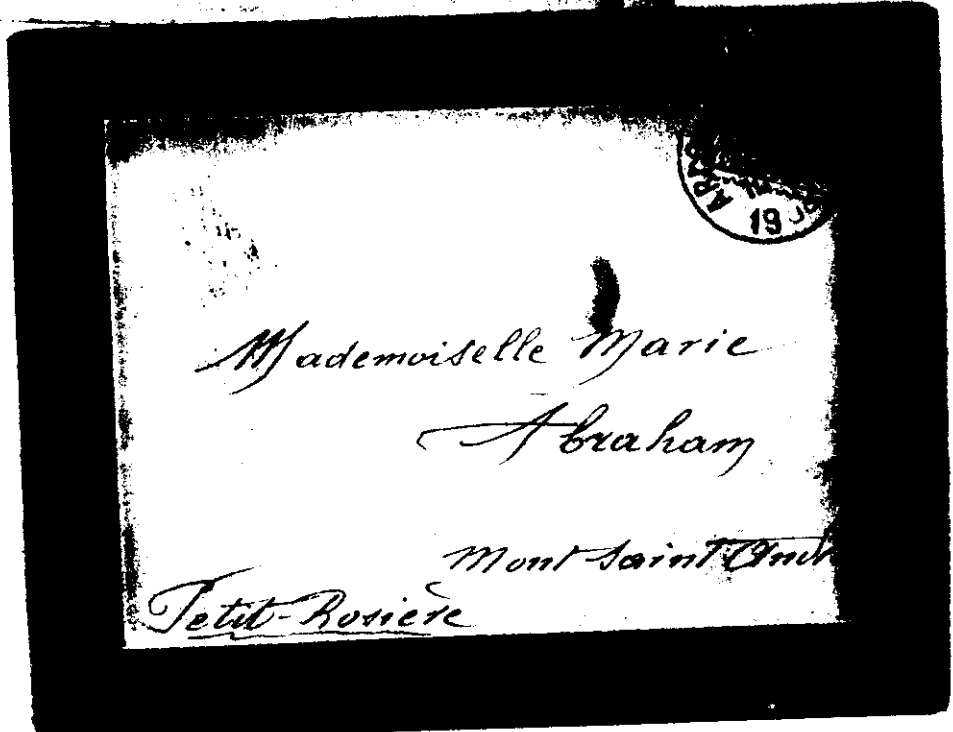 19
Mademoiselle Marie
Abraham
Mont Saint
Petit-Rosière